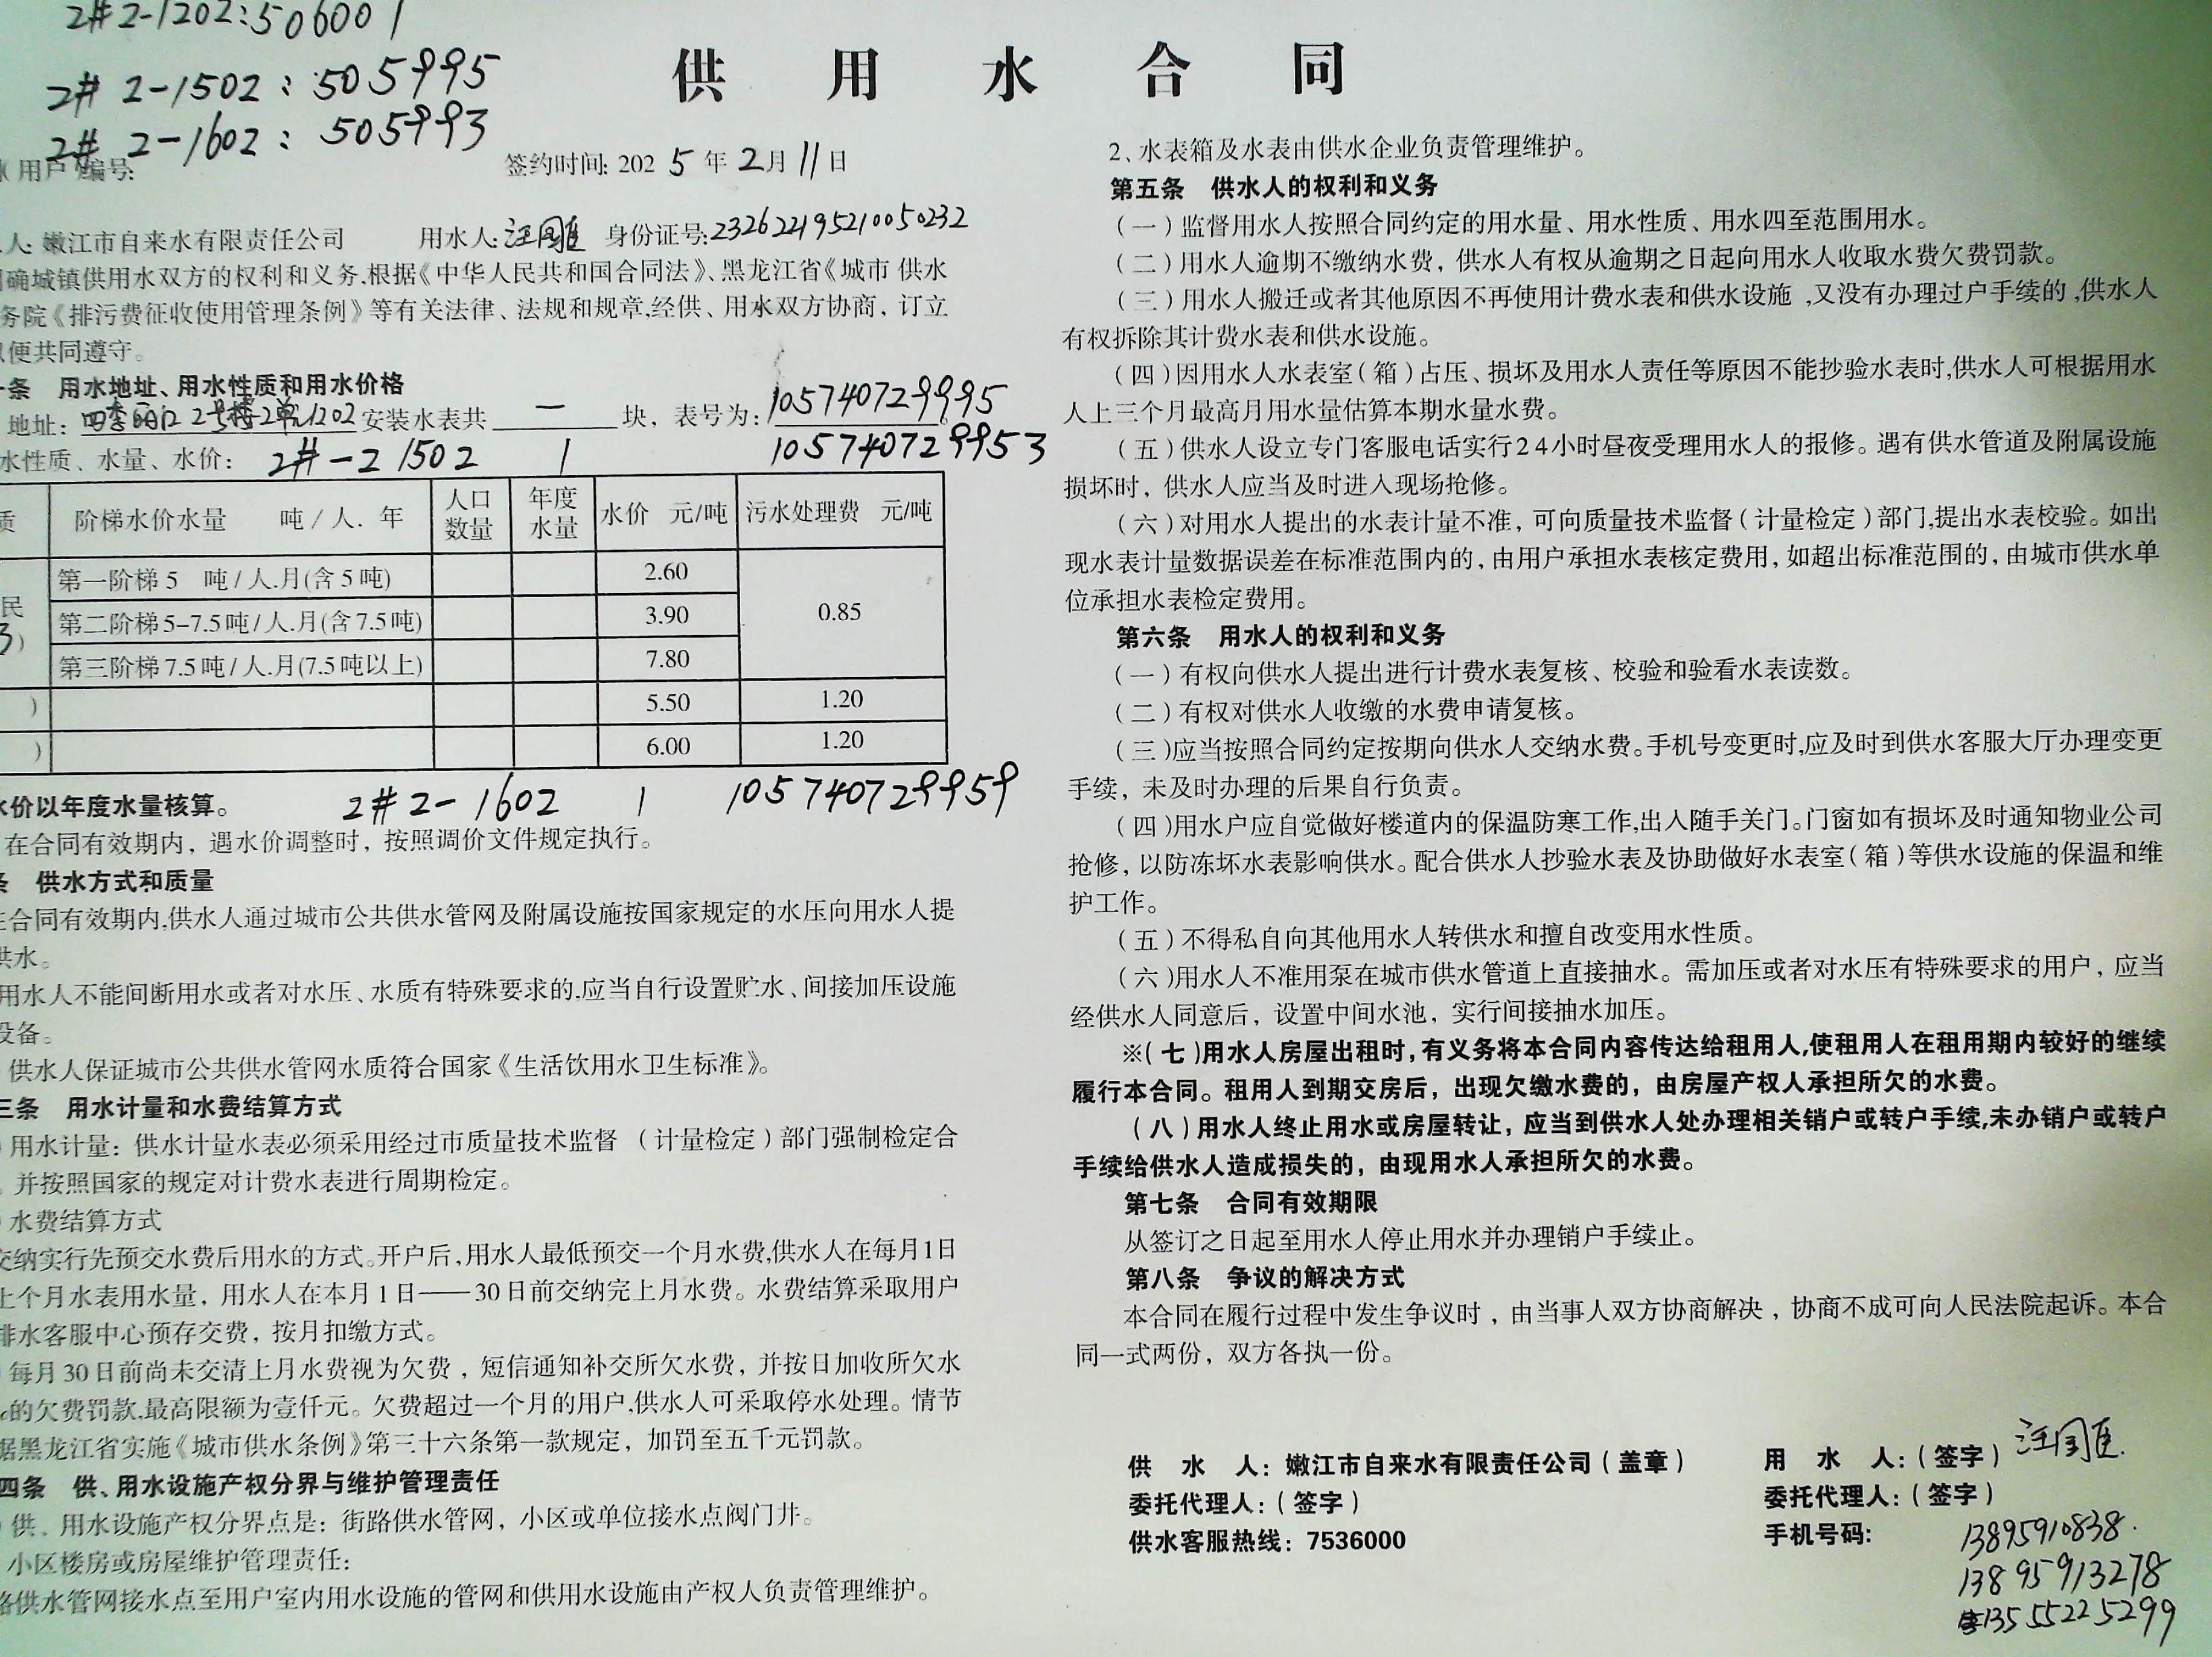 2#2-1202:506001
2# 2-1502:505995
2# 2-1602:505993
供用水合同
用户编号:
签约时间: 2025年2月11日
人: 嫩江市自来水有限责任公司 用水人: 汪国 身份证号:232622195210050232
确城镇供用水双方的权利和义务.根据《中华人民共和国合同法》、黑龙江省《城市 供水
务院《排污费征收使用管理条例》等有关法律、法规和规章,经供、用水双方协商，订立
便共同遵守。
条 用水地址、用水性质和用水价格
地址: 四季 2号楼2单1202 安装水表共 一 块，表号为: 105740729995
水性质、水量、水价: 2#-2 1502 1 105740729953
质 阶梯水价水量 吨/人. 年 人口数量 年度水量 水价 元/吨 污水处理费 元/吨
民 第一阶梯 5 吨/人.月(含 5 吨) 2.60 0.85
第二阶梯 5-7.5 吨/人.月(含 7.5 吨) 3.90
第三阶梯 7.5 吨/人.月(7.5 吨以上) 7.80
) 5.50 1.20
) 6.00 1.20
水价以年度水量核算。 2#2-1602 1 105740729959
在合同有效期内，遇水价调整时，按照调价文件规定执行。
条 供水方式和质量
合同有效期内,供水人通过城市公共供水管网及附属设施按国家规定的水压向用水人提
供水。
用水人不能间断用水或者对水压、水质有特殊要求的,应当自行设置贮水、间接加压设施
设备。
供水人保证城市公共供水管网水质符合国家《生活饮用水卫生标准》。
三条 用水计量和水费结算方式
用水计量：供水计量水表必须采用经过市质量技术监督（计量检定）部门强制检定合
并按照国家的规定对计费水表进行周期检定。
水费结算方式
交纳实行先预交水费后用水的方式。开户后,用水人最低预交一个月水费,供水人在每月1日
上个月水表用水量，用水人在本月 1 日——30 日前交纳完上月水费。水费结算采取用户
排水客服中心预存交费，按月扣缴方式。
每月 30 日前尚未交清上月水费视为欠费，短信通知补交所欠水费，并按日加收所欠水
的欠费罚款,最高限额为壹仟元。欠费超过一个月的用户,供水人可采取停水处理。情节
据黑龙江省实施《城市供水条例》第三十六条第一款规定，加罚至五千元罚款。
四条 供、用水设施产权分界与维护管理责任
供、用水设施产权分界点是：街路供水管网，小区或单位接水点阀门井。
小区楼房或房屋维护管理责任：
路供水管网接水点至用户室内用水设施的管网和供用水设施由产权人负责管理维护。
2、水表箱及水表由供水企业负责管理维护。
第五条 供水人的权利和义务
（一）监督用水人按照合同约定的用水量、用水性质、用水四至范围用水。
（二）用水人逾期不缴纳水费，供水人有权从逾期之日起向用水人收取水费欠费罚款。
（三）用水人搬迁或者其他原因不再使用计费水表和供水设施,又没有办理过户手续的,供水人
有权拆除其计费水表和供水设施。
（四）因用水人水表室（箱）占压、损坏及用水人责任等原因不能抄验水表时,供水人可根据用水
人上三个月最高月用水量估算本期水量水费。
（五）供水人设立专门客服电话实行24小时昼夜受理用水人的报修。遇有供水管道及附属设施
损坏时，供水人应当及时进入现场抢修。
（六）对用水人提出的水表计量不准，可向质量技术监督（计量检定）部门,提出水表校验。如出
现水表计量数据误差在标准范围内的，由用户承担水表核定费用，如超出标准范围的，由城市供水单
位承担水表检定费用。
第六条 用水人的权利和义务
（一）有权向供水人提出进行计费水表复核、校验和验看水表读数。
（二）有权对供水人收缴的水费申请复核。
（三）应当按照合同约定按期向供水人交纳水费。手机号变更时,应及时到供水客服大厅办理变更
手续，未及时办理的后果自行负责。
（四）用水户应自觉做好楼道内的保温防寒工作,出入随手关门。门窗如有损坏及时通知物业公司
抢修，以防冻坏水表影响供水。配合供水人抄验水表及协助做好水表室（箱）等供水设施的保温和维
护工作。
（五）不得私自向其他用水人转供水和擅自改变用水性质。
（六）用水人不准用泵在城市供水管道上直接抽水。需加压或者对水压有特殊要求的用户，应当
经供水人同意后，设置中间水池，实行间接抽水加压。
※（七）用水人房屋出租时，有义务将本合同内容传达给租用人,使租用人在租用期内较好的继续
履行本合同。租用人到期交房后，出现欠缴水费的，由房屋产权人承担所欠的水费。
（八）用水人终止用水或房屋转让，应当到供水人处办理相关销户或转户手续,未办销户或转户
手续给供水人造成损失的，由现用水人承担所欠的水费。
第七条 合同有效期限
从签订之日起至用水人停止用水并办理销户手续止。
第八条 争议的解决方式
本合同在履行过程中发生争议时，由当事人双方协商解决，协商不成可向人民法院起诉。本合
同一式两份，双方各执一份。
供 水 人：嫩江市自来水有限责任公司（盖章）
委托代理人：（签字）
供水客服热线：7536000
用 水 人：（签字）汪国
委托代理人：（签字）
手机号码: 13895910838.
13895913278
13555225299